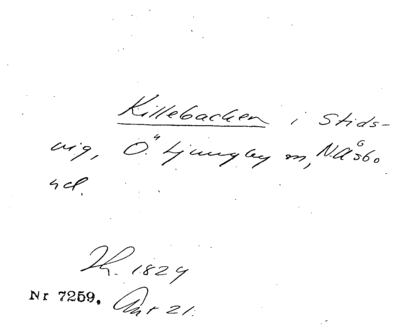 Killebacken i Stids-
vig, Ö. Ljungby sn, N. Åsbo
hd.
Th. 1829
Nr 7259. Ant 21.